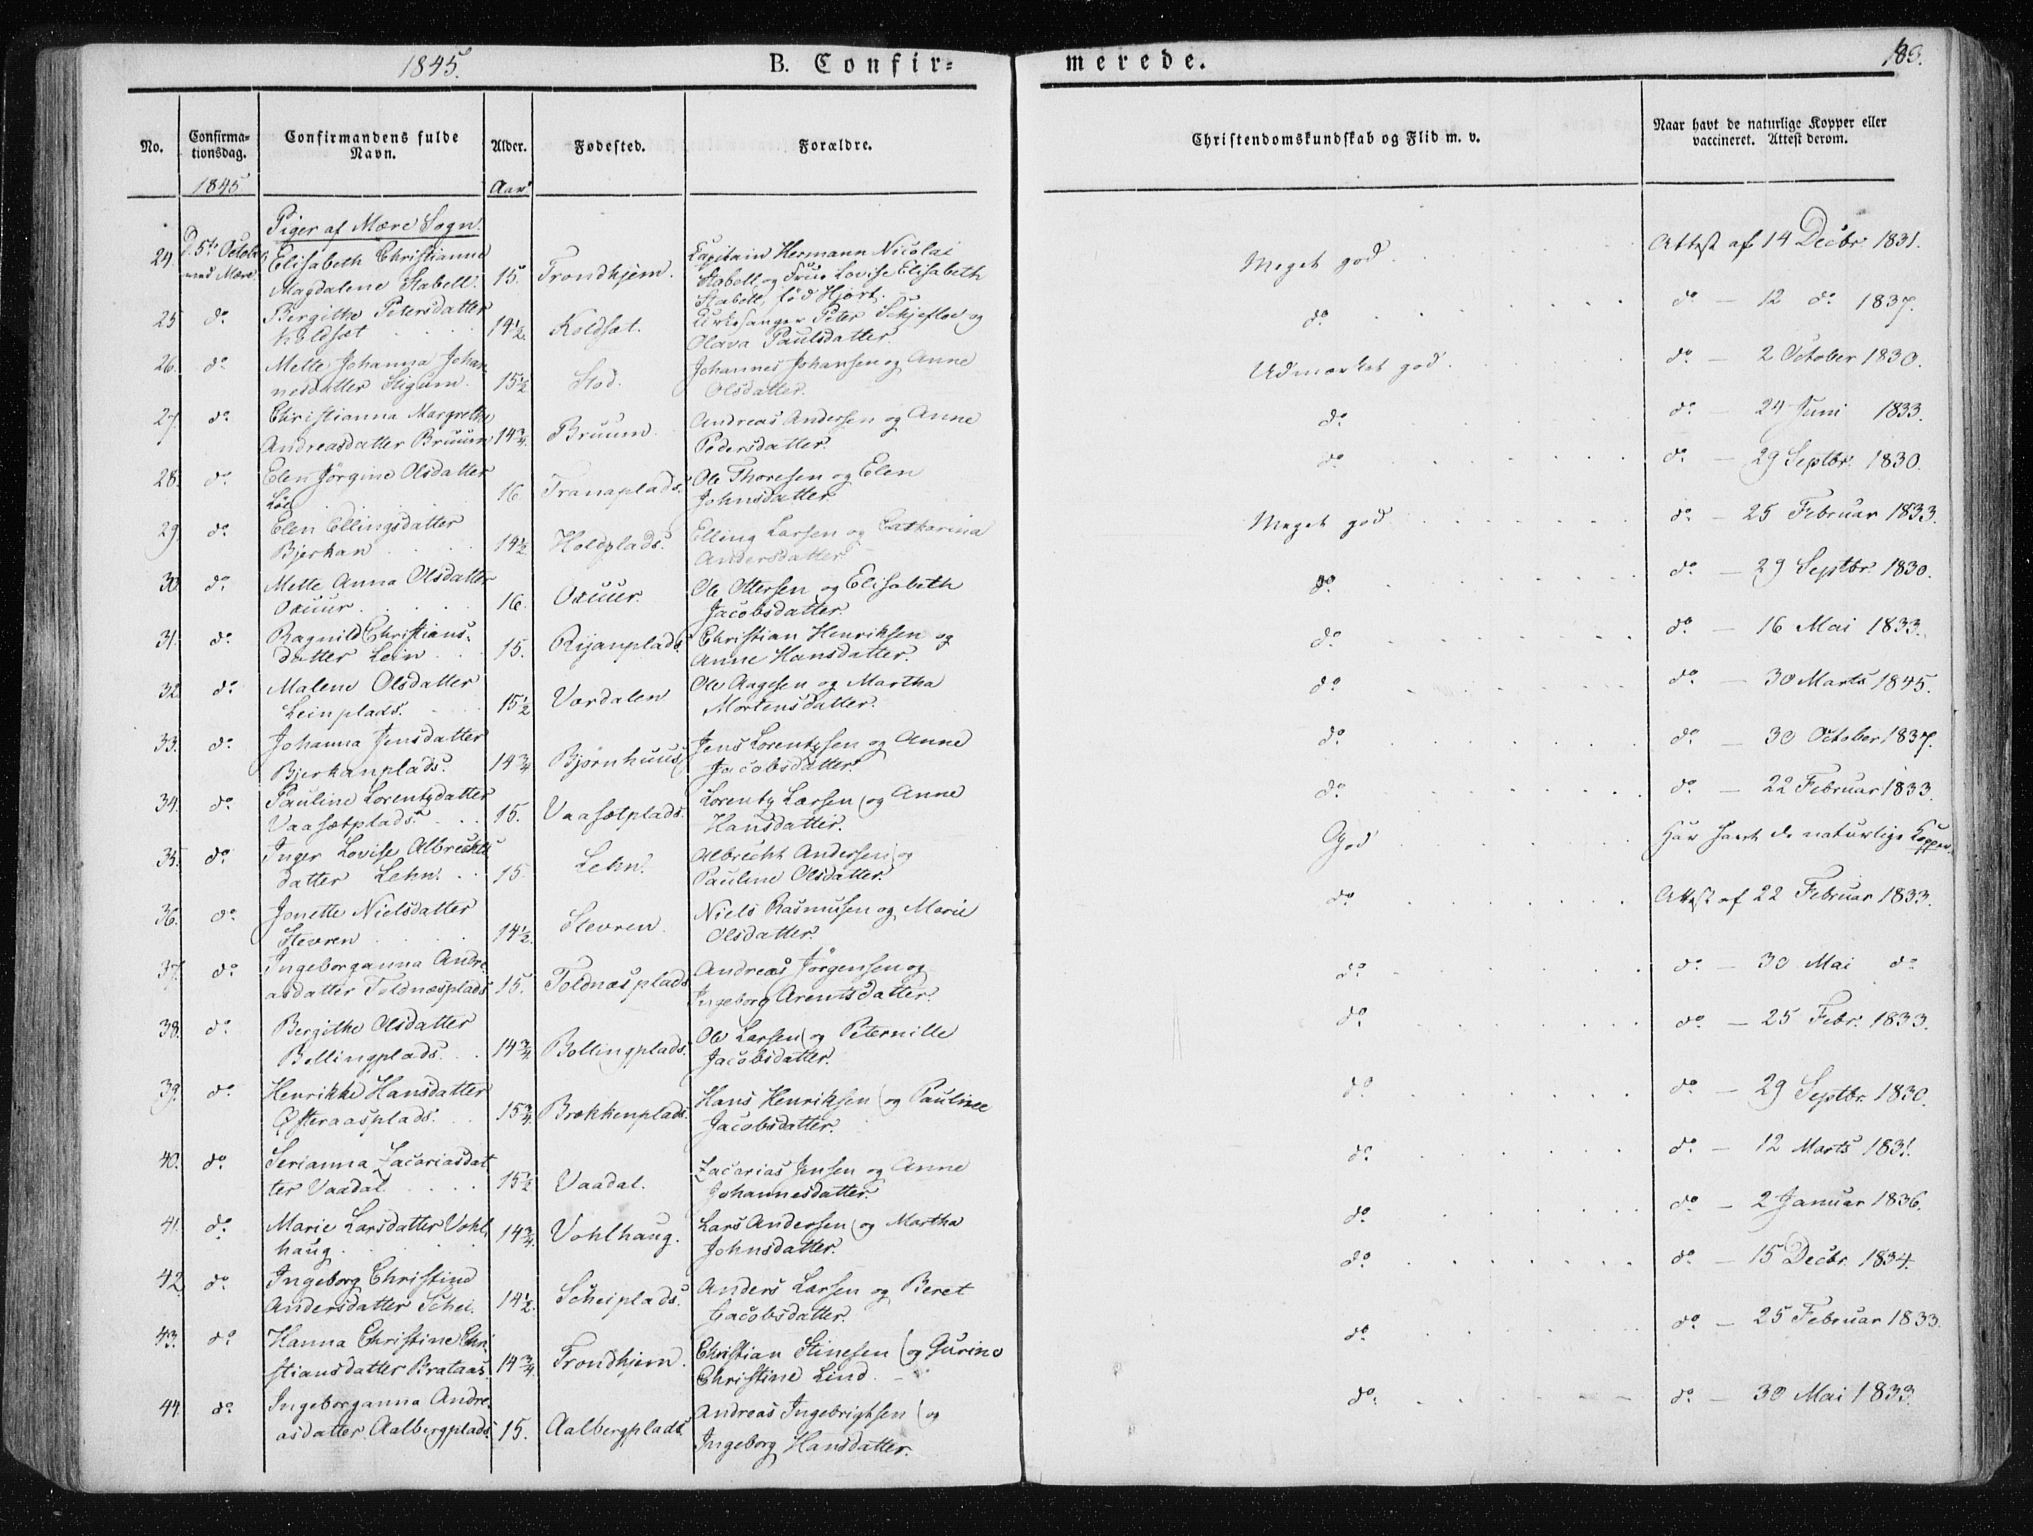 1845.
B. Confir=
merede.
183.
No.
Confirma-
tionsdag.
Confirmandens fulde
Navn.
Alder.
Fødested.
Forældre.
Christendomskundskab og Flid m. v.
Naar havt de naturlige Kopper eller
vaccineret. Attest derom.
1845
Aar
Piger af Mære Sogn.
24 d. 5te Octob. Elisabeth Christianne Capitain Hermann Nicolai Attest af 14 Decbr 1831.
ved Mære. Magdalene Stabell. 15. Trondhjem. Stabell og Frue Lovise Elisabeth Meget god.
Stabell, fød Hjort.
25 do Bergithe Petersdatter Kirkesanger Peter Schjefloe og do — 12 do 1837.
Koldsæt 14½. Koldsæt. Olava Paulsdatter. do
26. do Mette Johanna Johan Johannes Johansen og Anne do — 2 October 1830.
nesdatter Stigum. 15½ Stod. Olsdatter. Udmærket god.
27. do Christianna Margrethe Andreas Andersen og Anne do — 24 Juni 1833.
Andreasdatter Bruum 14¾. Bruum. Pedersdatter. do
28. do Elen Jørgine Olsdatter Ole Thoresen og Elen do — 29 Septbr. 1830.
16. Tranaplads. Johnsdatter. do
29. do Elen Ellingsdatter Elling Larsen og Catharina do — 25 Februar 1833.
Bjerkan 14½ Holdplads. Andersdatter Meget god
30. do Mette Anna Olsdatter Ole Ottersen og Elisabeth do — 29 Septbr. 1830.
Oxuur. 16. Oxuur. Jacobsdatter. do
31. do Ragnild Christians- Christian Henriksen og do — 16 Mai 1833.
datter Lein 15. Rijanplads. Anne Hansdatter. do
32. do Malene Olsdatter Ole Aagesen og Martha do — 30 Marts 1845.
Leinplads. 15½ Værdalen Mortensdatter. do
33. do Johanna Jensdatter Jens Lorentzsen og Anne do — 30 October 1837.
Bjerkanplads. 14¾ Bjørnhuus Jacobsdatter. do
34. do Pauline Lorentzdatter Lorentz Larsen og Anne do — 22 Februar 1833.
Vaasætplads. 15. Vaasætplads. Hansdatter. do
35. do Inger Lovise Albrechts Albrecht Andersen og Har havt de naturlige Kopper.
datter Lehn. 15. Lehn. Pauline Olsdatter. God
36. do Jonette Nielsdatter Niels Rasmusen og Marie Attest af 22 Februar 1833.
Stevren 14½. Stevren. Olsdatter. do
37. do Ingeborganna Andre Andreas Jørgensen og do — 30 Mai do
asdatter Toldnæsplads 15. Toldnæsplads Ingeborg Arentsdatter. do
38. do Bergithe Olsdatter Ole Larsen og Peternille do — 25 Febr. 1833.
Bollingplads. 14¾ Bollingplads. Jacobsdatter. do
39. do Henrikke Hansdatter Hans Henriksen og Pauline do — 29 Septbr. 1830.
Efteraasplads. 15¾. Brækkenplads. Jacobsdatter. do
40. do Serianna Zacariasdat Zacarias Jensen og Anne do — 12 Marts 1831.
ter Vaadal. 15½ Vaadal. Johannesdatter. do
41. do Marie Larsdatter Vohl Lars Andersen og Martha do — 2 Januar 1836.
haug. 14¾. Vohlhaug. Johnsdatter. do
42. do Ingeborg Christine Anders Larsen og Beret do — 15 Decbr. 1834.
Andersdatter Schei. 14½. Scheiplads. Jacobsdatter. do
43. do Hanna Christine Chri Christian Stinesen og Gurine do — 25 Februar 1833.
stiansdatter Brataas. 14¾. Trondhjem. Christine Lind. do
44. do Ingeborganna Andre- Andreas Ingebrigtsen og do — 30 Mai 1833.
asdatter Aalbergplads. 15. Aalbergplads. Ingeborg Hansdatter. do